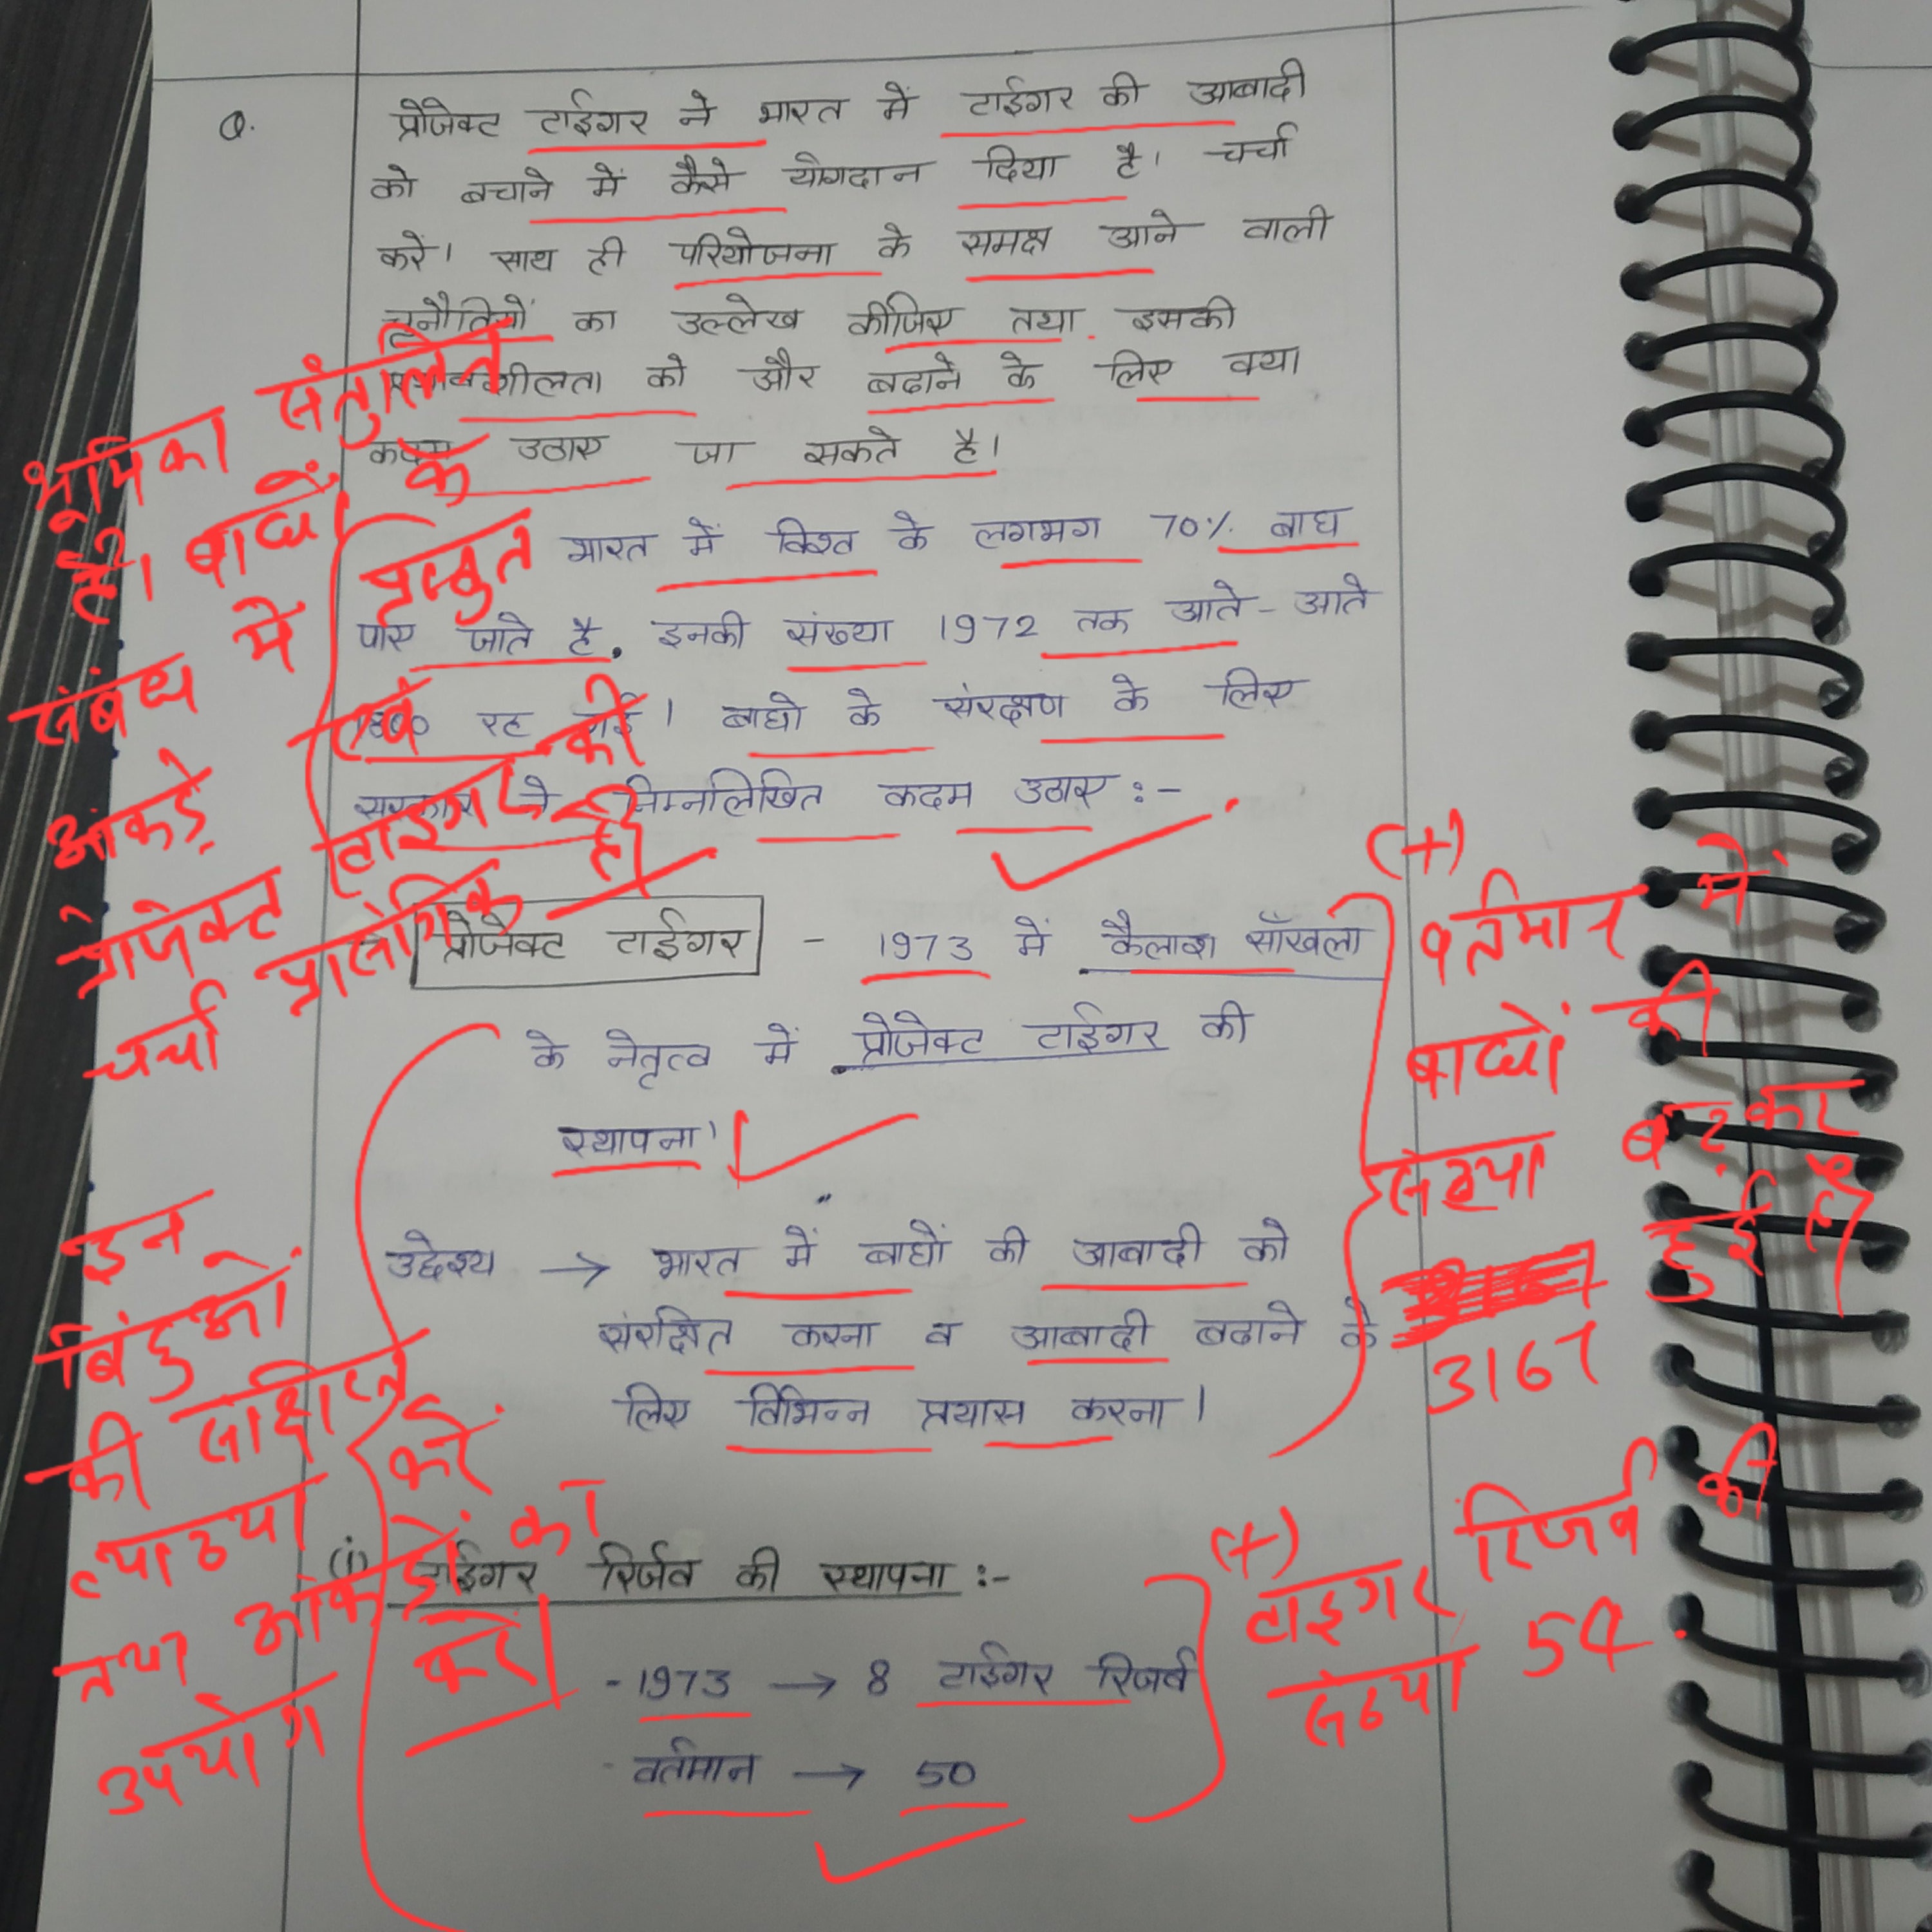 Q.
प्रोजेक्ट टाईगर ने भारत में टाईगर की आबादी
को बचाने में कैसे योगदान दिया है। चर्चा
करें। साथ ही परियोजना के समक्ष आने वाली
चुनौतियों का उल्लेख कीजिए तथा इसकी
प्रभावशीलता को और बढाने के लिए क्या
कदम उठाए जा सकते है।
भूमिका संतुलित
है। बाघों के
संबंध में प्रस्तुत
आंकड़े एवं
प्रोजेक्ट टाइगर की
चर्चा प्रासंगिक है।
भारत में विश्व के लगभग 70% बाघ
पाए जाते है. इनकी संख्या 1972 तक आते-आते
1800 रह गई। बाघो के संरक्षण के लिए
सरकार ने निम्नलिखित कदम उठाए :-
प्रोजेक्ट टाईगर - 1973 में कैलाश साँखला
के नेतृत्व में प्रोजेक्ट टाईगर की
स्थापना।
उद्देश्य → भारत में बाघों की आबादी को
संरक्षित करना व आबादी बढाने के
लिए विभिन्न प्रयास करना।
(+)
वर्तमान में
बाघों की
संख्या बढ़कर
3167 हुई है।
इन
बिंदुओं
की संक्षिप्त
व्याख्या करें
तथा आंकड़ों का
उपयोग करें।
(i) टाईगर रिर्जव की स्थापना :-
- 1973 → 8 टाईगर रिजर्व
- वर्तमान → 50
(+)
टाइगर रिजर्व की
संख्या 54